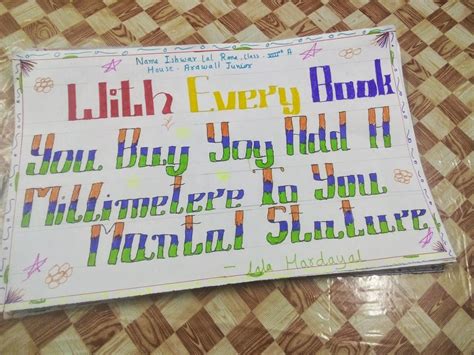 Name Ishwar Lal Rana, Class - VIIIth A
House - Arawali Junior
With Every Book
You Buy Yoy Add A
Millimetere To You
Mantal Stature
- Lala Hardayal